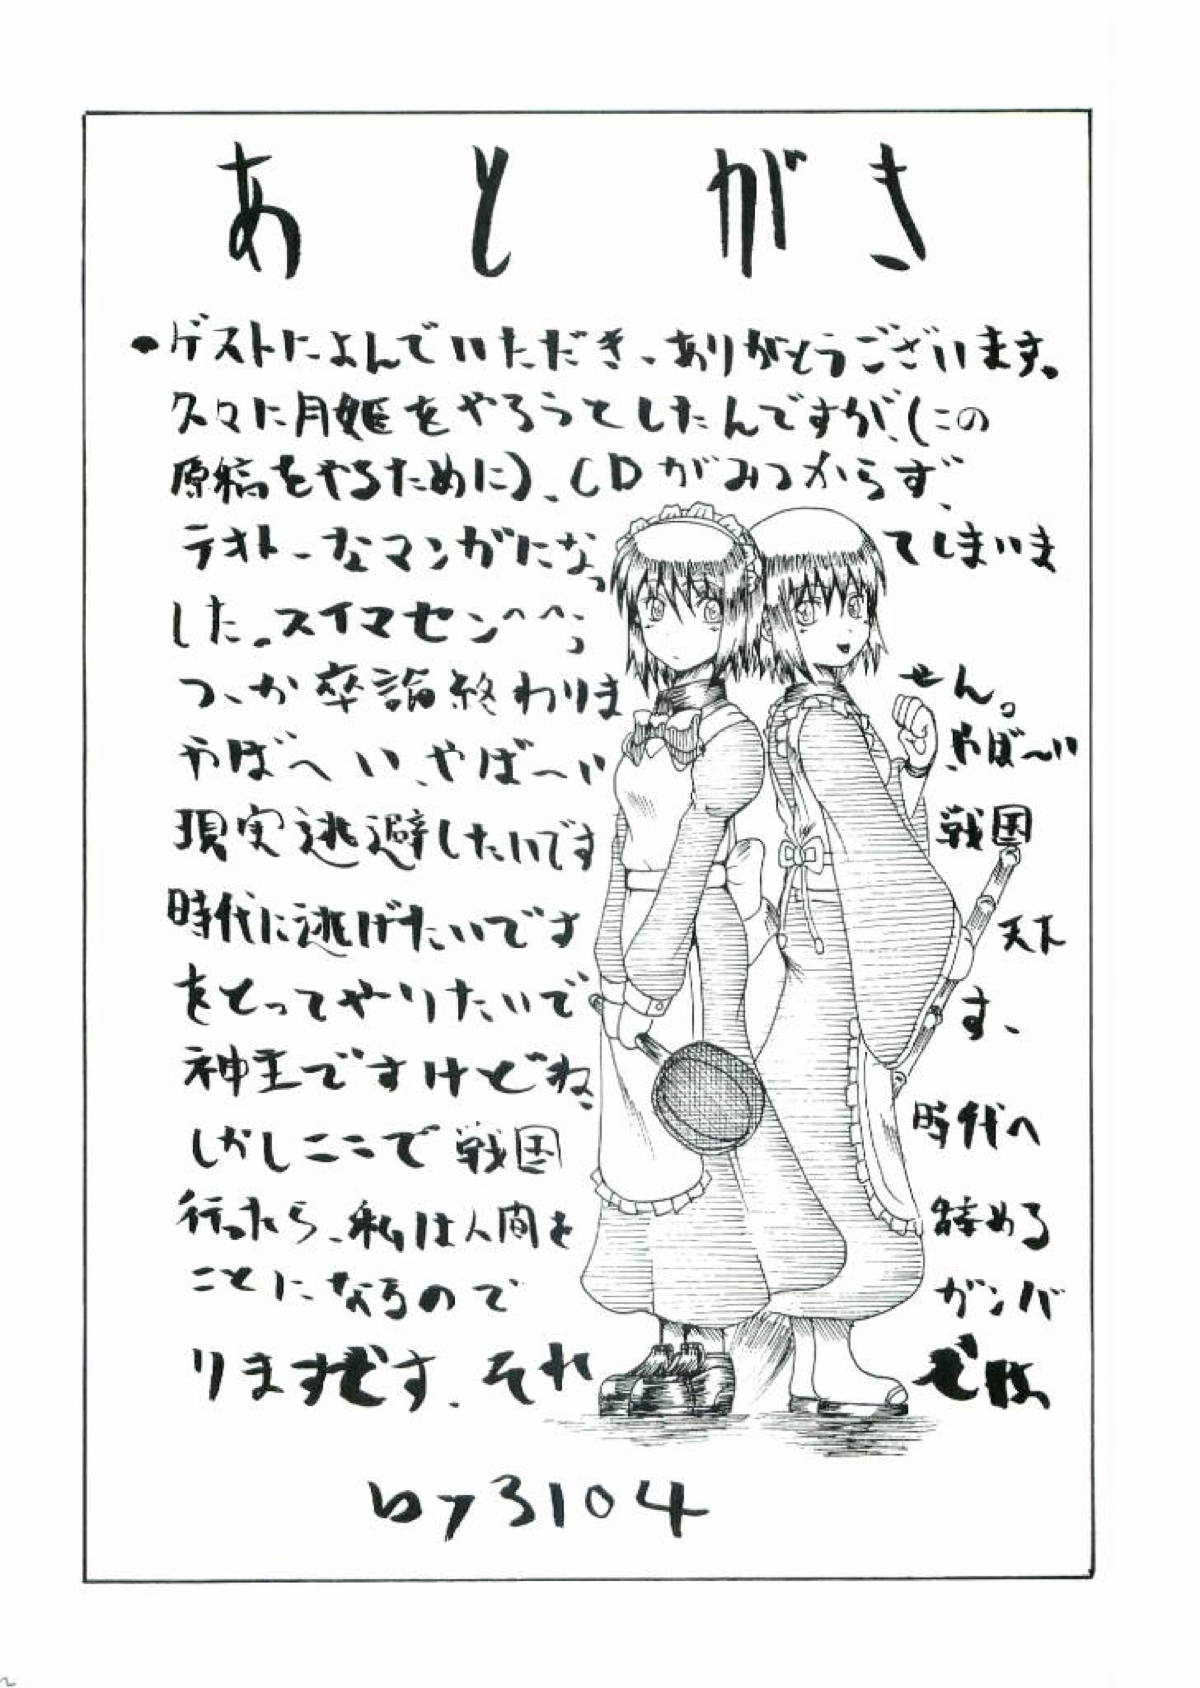 あとがき
・ゲストによんでいただき、ありがとうございます。
久々に月姫をやろうてしたんですが、(この
原稿をやるために)、CDがみつからず、
テキトーなマンガになってしまいま
した。スイマセン^^;
つーか卒論終わりません。
やばーい、やばーい、やばーい
現実逃避したいです 戦国
時代に逃げたいです 天下
をとってやりたいです、
神主ですけどね、
しかしここで戦国時代へ
行ったら、私は人間を辞める
ことになるのでガンバ
りますぜす、それでは
by 3104